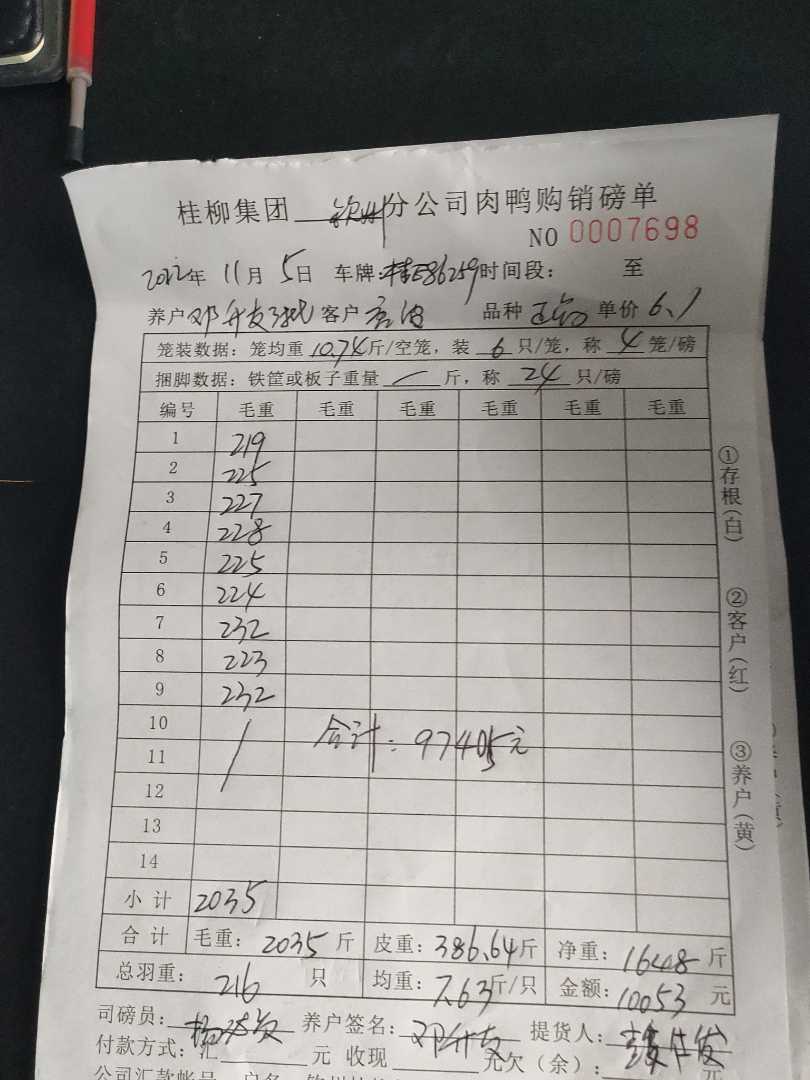 桂柳集团 钦州 分公司肉鸭购销磅单
NO 0007698
2022年 11月 5日 车牌: 桂E86259 时间段: 至
养户 邓开友 客户 品种 单价 6.1
笼装数据: 笼均重 10.74 斤/空笼, 装 6 只/笼, 称 4 笼/磅
捆脚数据: 铁筐或板子重量 / 斤, 称 24 只/磅
编号 毛重 毛重 毛重 毛重 毛重 毛重
1 219
2 225
3 227
4 228
5 225
6 224
7 232
8 223
9 232
10
合计: 97405元
11
12
13
14
小计 2035
合计 毛重: 2035 斤 皮重: 386.64 斤 净重: 1648 斤
总羽重: 216 只 均重: 7.63 斤/只 金额: 10053 元
司磅员: 养户签名: 邓开友 提货人:
付款方式: 汇 元 收现 元欠(余): 元
公司汇款帐号 户名
①存根(白)
②客户(红)
③养户(黄)